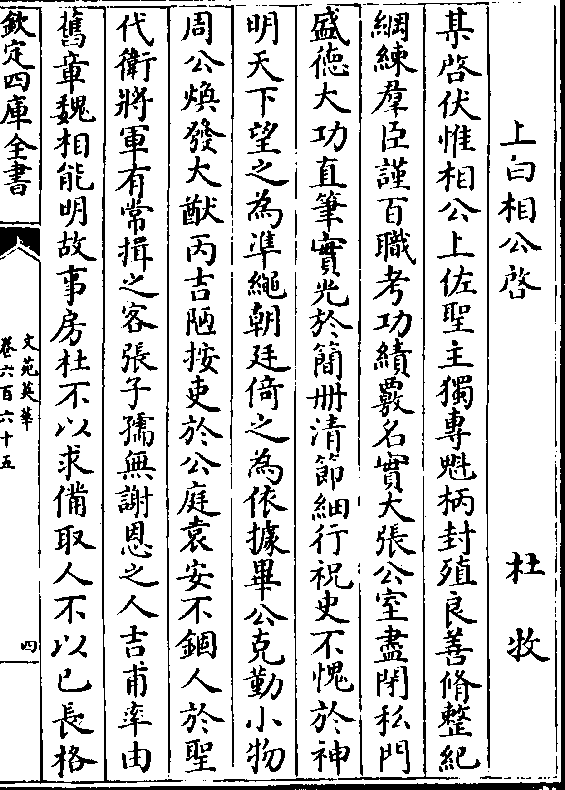 上白相公啓　杜牧
某啓伏惟相公上佐聖主獨專魁柄封殖良善脩整紀
綱練羣臣謹百職考功績覈名實大張公室盡閉私門
盛德大功直筆實光於簡冊清節細行祝史不愧於神
明天下望之為準繩朝廷倚之為依據畢公克勤小物
周公煥發大猷丙吉陋按吏於公庭袁安不錮人於聖
代衛將軍有常揖之客張子孺無謝恩之人吉甫率由
舊章魏相能明故事房杜不以求備取人不以已長格
欽定四庫全書
文苑英華
卷六百六十五
四